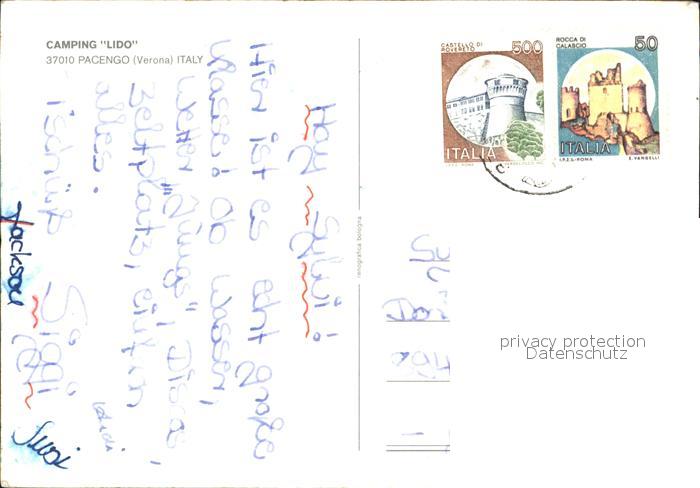 CAMPING "LIDO"
37010 PACENGO (Verona) ITALY
Hey Sylvi!
Hier ist es echt große
Klasse! Ob Wasser,
Wetter, "Jungs", Discos,
Zeltplatz, einfach
alles.
Tschüß Siggi
Jackson
Susi
Heidi
renografica bologna
CASTELLO DI
ROVERETO
500
ITALIA
I.P.Z.S. - ROMA
ROCCA DI
CALASCIO
50
ITALIA
I.P.Z.S. - ROMA E. VANGELLI
privacy protection
Datenschutz